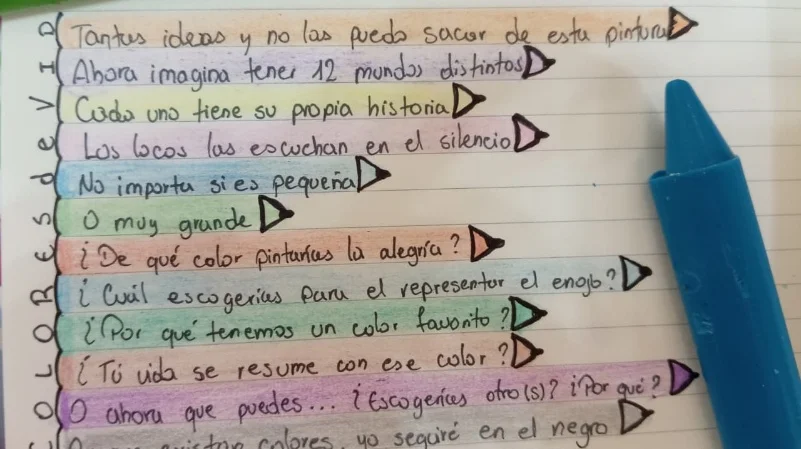 COLORES de
Tantas ideas y no las puedo sacar de esta pintura
Ahora imagina tener 12 mundos distintos
Cada uno tiene su propia historia
Los locos las escuchan en el silencio
No importa si es pequeña
O muy grande
¿De qué color pintarías la alegría?
¿Cuál escogerías para el representar el enojo?
¿Por qué tenemos un color favorito?
¿Tú vida se resume con ese color?
O ahora que puedes... ¿Escogerías otro(s)? ¿Por qué?
colores, yo seguiré en el negro